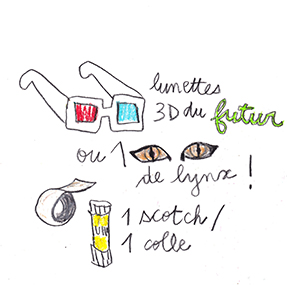 lunettes
3D du futur
ou 1
de lynx !
1 scotch /
1 colle